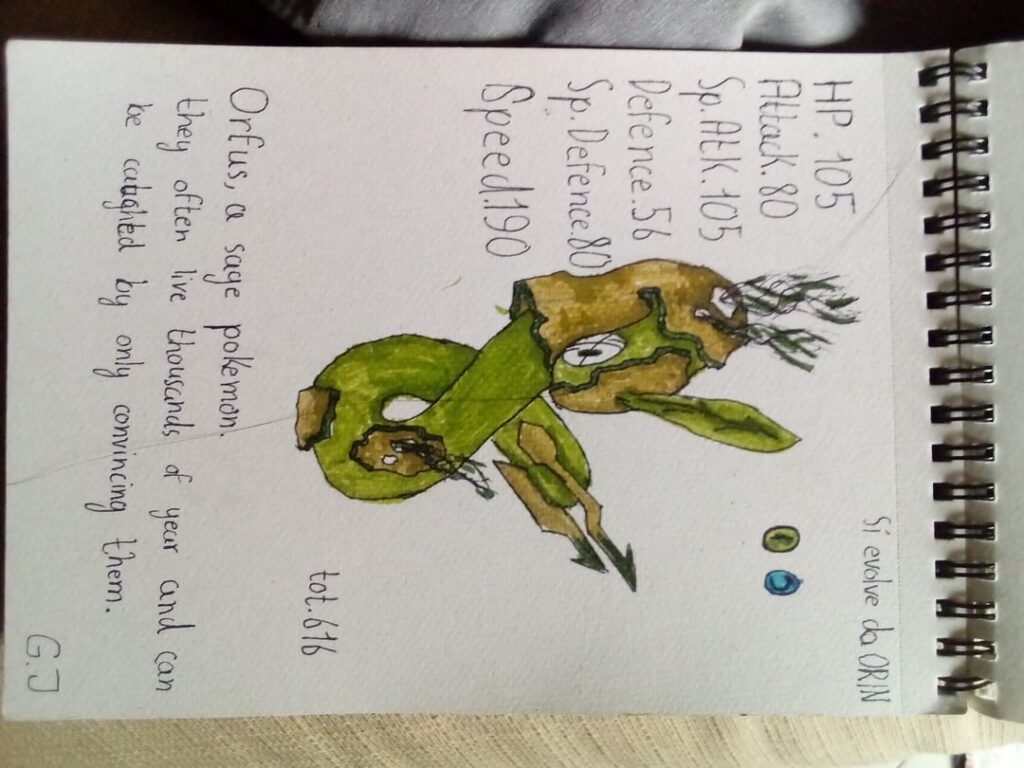 Si evolve da ORIN
HP. 105
Attack. 80
Sp. Atk. 105
Defence. 56
Sp. Defence. 80
Speed. 190
tot. 616
Orfus, a sage pokemon.
they often live thousands of year and can
be caughted by only convincing them.
G.J